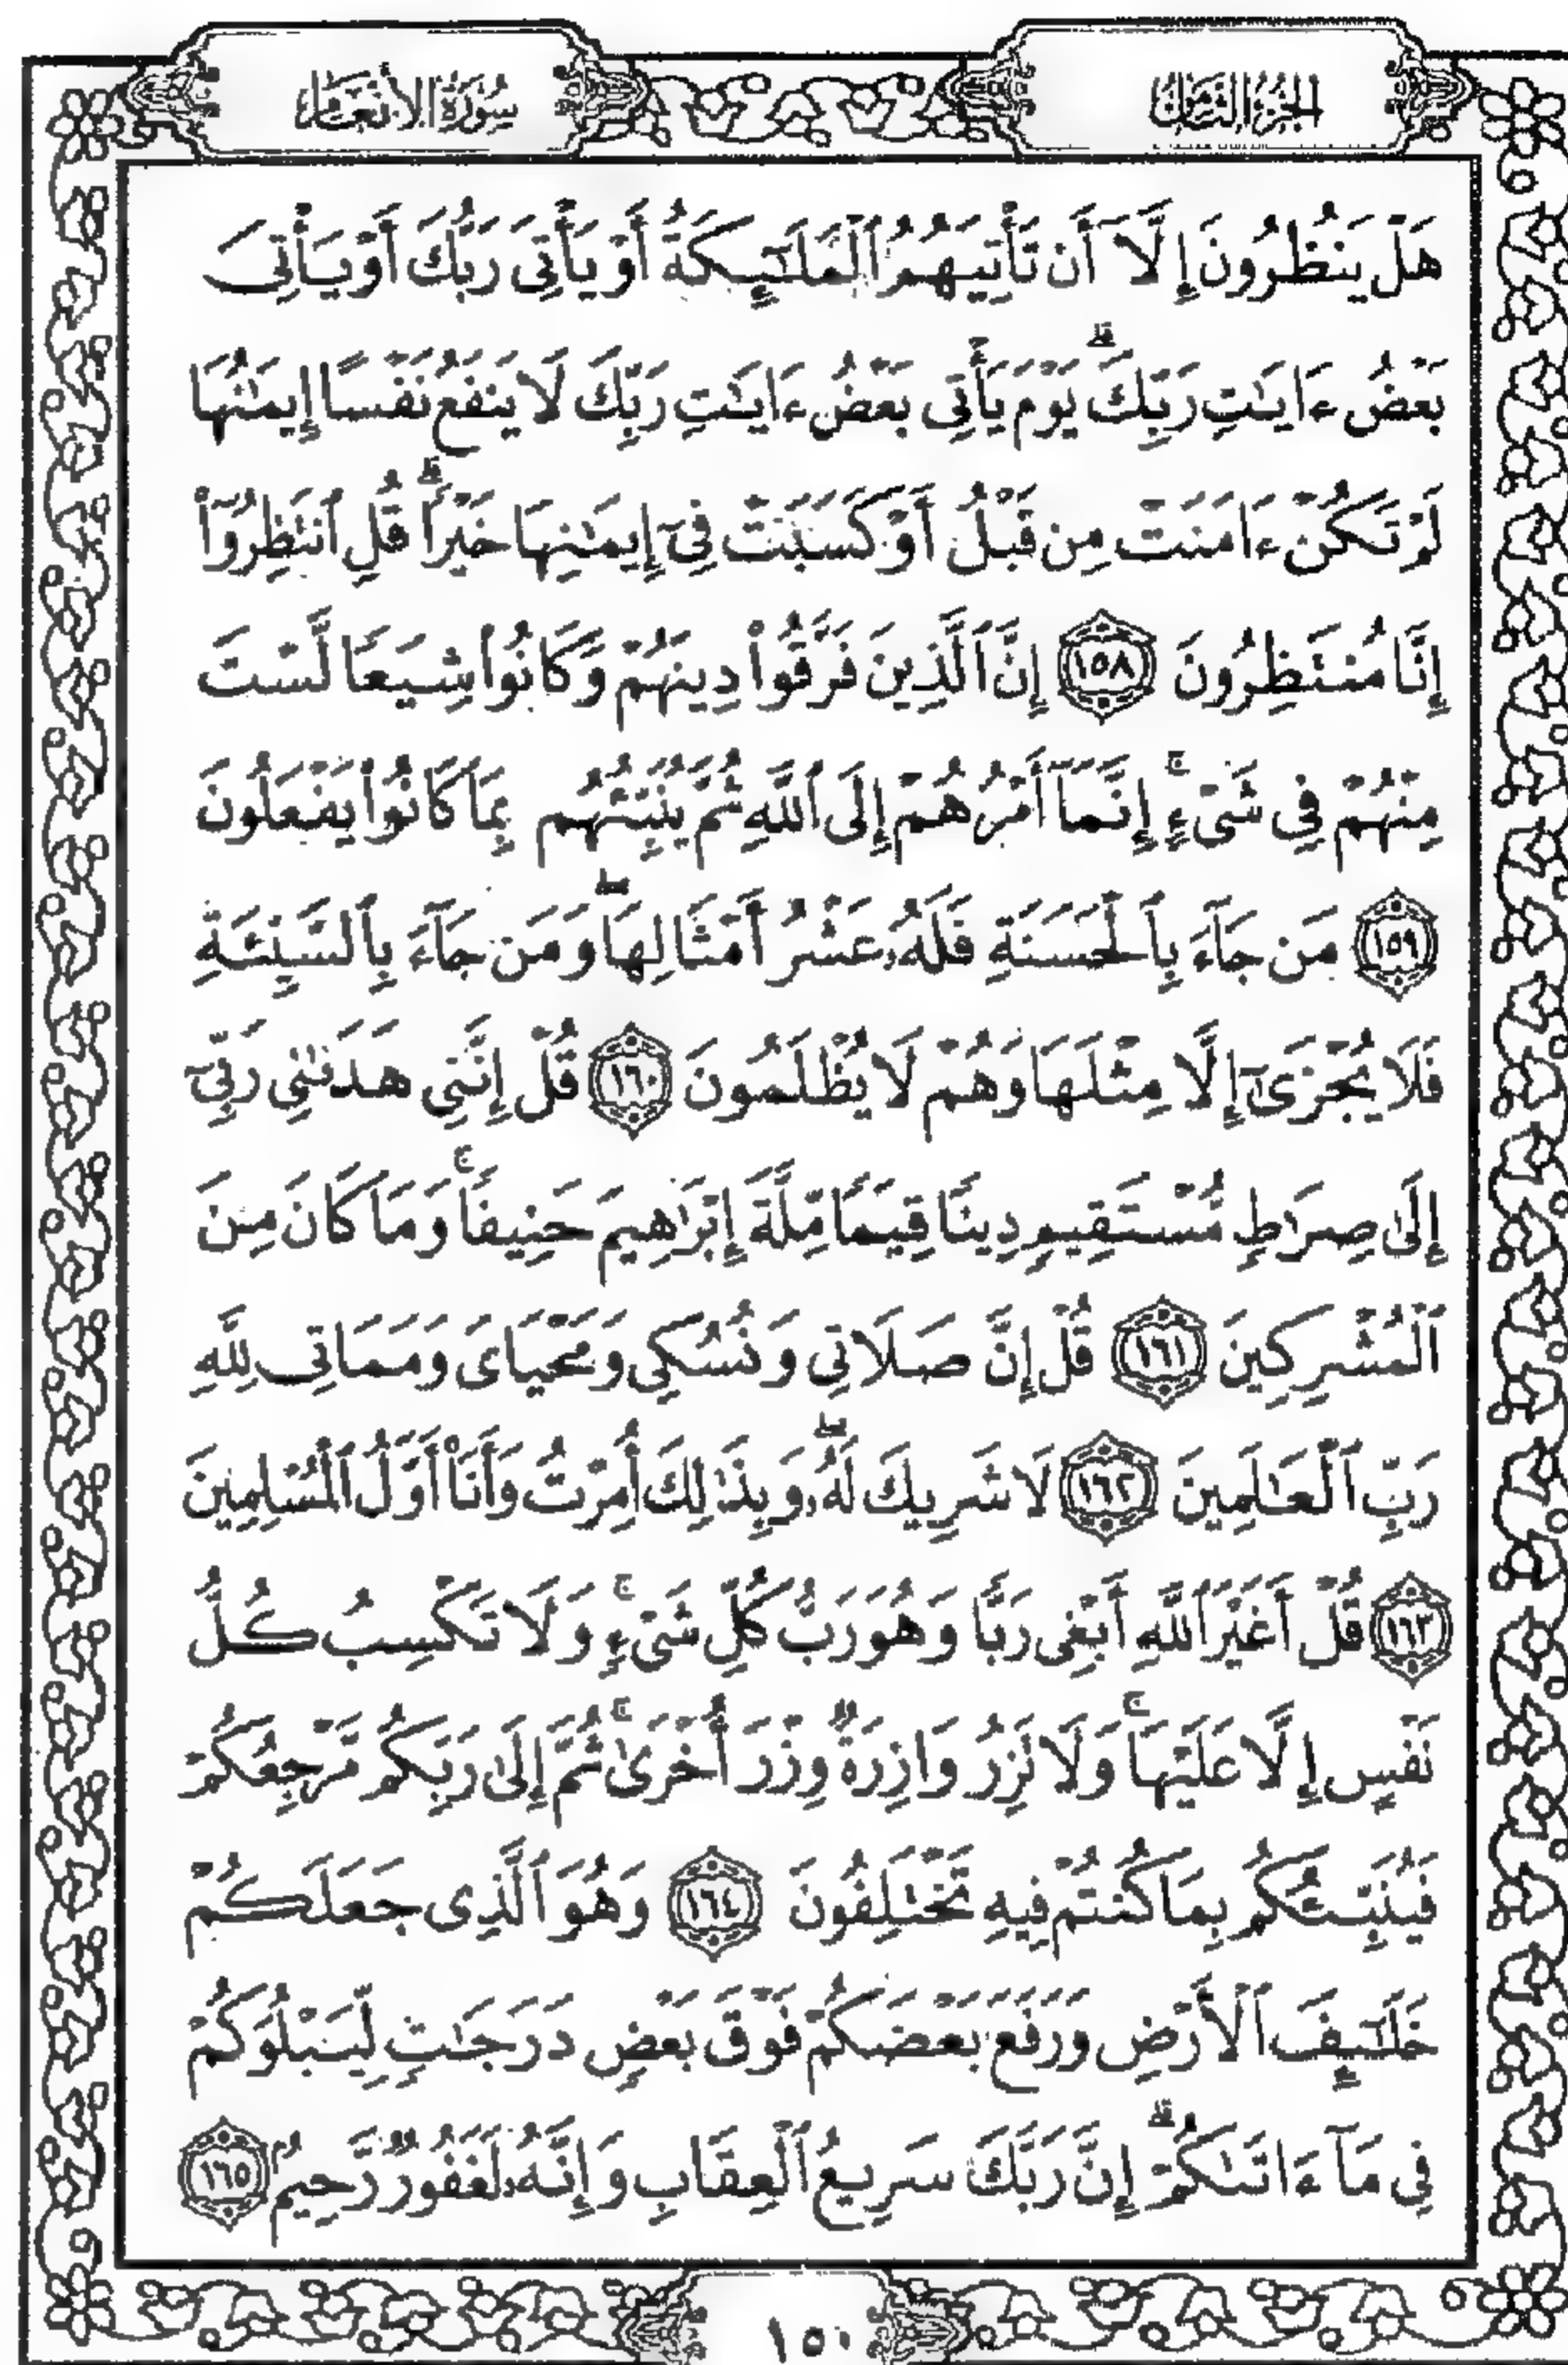 الجزء الثامن
سورة الأنعام
هَلْ يَنظُرُونَ إِلَّآ أَن تَأْتِيَهُمُ ٱلْمَلَـٰٓئِكَةُ أَوْ يَأْتِىَ رَبُّكَ أَوْ يَأْتِىَ
بَعْضُ ءَايَـٰتِ رَبِّكَ ۗ يَوْمَ يَأْتِى بَعْضُ ءَايَـٰتِ رَبِّكَ لَا يَنفَعُ نَفْسًا إِيمَـٰنُهَا
لَمْ تَكُنْ ءَامَنَتْ مِن قَبْلُ أَوْ كَسَبَتْ فِىٓ إِيمَـٰنِهَا خَيْرًا ۗ قُلِ ٱنتَظِرُوٓا۟
إِنَّا مُنتَظِرُونَ ١٥٨ إِنَّ ٱلَّذِينَ فَرَّقُوا۟ دِينَهُمْ وَكَانُوا۟ شِيَعًا لَّسْتَ
مِنْهُمْ فِى شَىْءٍ ۚ إِنَّمَآ أَمْرُهُمْ إِلَى ٱللَّهِ ثُمَّ يُنَبِّئُهُم بِمَا كَانُوا۟ يَفْعَلُونَ
١٥٩ مَن جَآءَ بِٱلْحَسَنَةِ فَلَهُۥ عَشْرُ أَمْثَالِهَا ۖ وَمَن جَآءَ بِٱلسَّيِّئَةِ
فَلَا يُجْزَىٰٓ إِلَّا مِثْلَهَا وَهُمْ لَا يُظْلَمُونَ ١٦٠ قُلْ إِنَّنِى هَدَىٰنِى رَبِّىٓ
إِلَىٰ صِرَٰطٍ مُّسْتَقِيمٍ دِينًا قِيَمًا مِّلَّةَ إِبْرَٰهِيمَ حَنِيفًا ۚ وَمَا كَانَ مِنَ
ٱلْمُشْرِكِينَ ١٦١ قُلْ إِنَّ صَلَاتِى وَنُسُكِى وَمَحْيَاىَ وَمَمَاتِى لِلَّهِ
رَبِّ ٱلْعَـٰلَمِينَ ١٦٢ لَا شَرِيكَ لَهُۥ ۖ وَبِذَٰلِكَ أُمِرْتُ وَأَنَا۠ أَوَّلُ ٱلْمُسْلِمِينَ
١٦٣ قُلْ أَغَيْرَ ٱللَّهِ أَبْغِى رَبًّا وَهُوَ رَبُّ كُلِّ شَىْءٍ ۚ وَلَا تَكْسِبُ كُلُّ
نَفْسٍ إِلَّا عَلَيْهَا ۚ وَلَا تَزِرُ وَازِرَةٌ وِزْرَ أُخْرَىٰ ۚ ثُمَّ إِلَىٰ رَبِّكُم مَّرْجِعُكُمْ
فَيُنَبِّئُكُم بِمَا كُنتُمْ فِيهِ تَخْتَلِفُونَ ١٦٤ وَهُوَ ٱلَّذِى جَعَلَكُمْ
خَلَـٰٓئِفَ ٱلْأَرْضِ وَرَفَعَ بَعْضَكُمْ فَوْقَ بَعْضٍ دَرَجَـٰتٍ لِّيَبْلُوَكُمْ
فِى مَآ ءَاتَىٰكُمْ ۗ إِنَّ رَبَّكَ سَرِيعُ ٱلْعِقَابِ وَإِنَّهُۥ لَغَفُورٌ رَّحِيمٌۢ ١٦٥
١٥٠